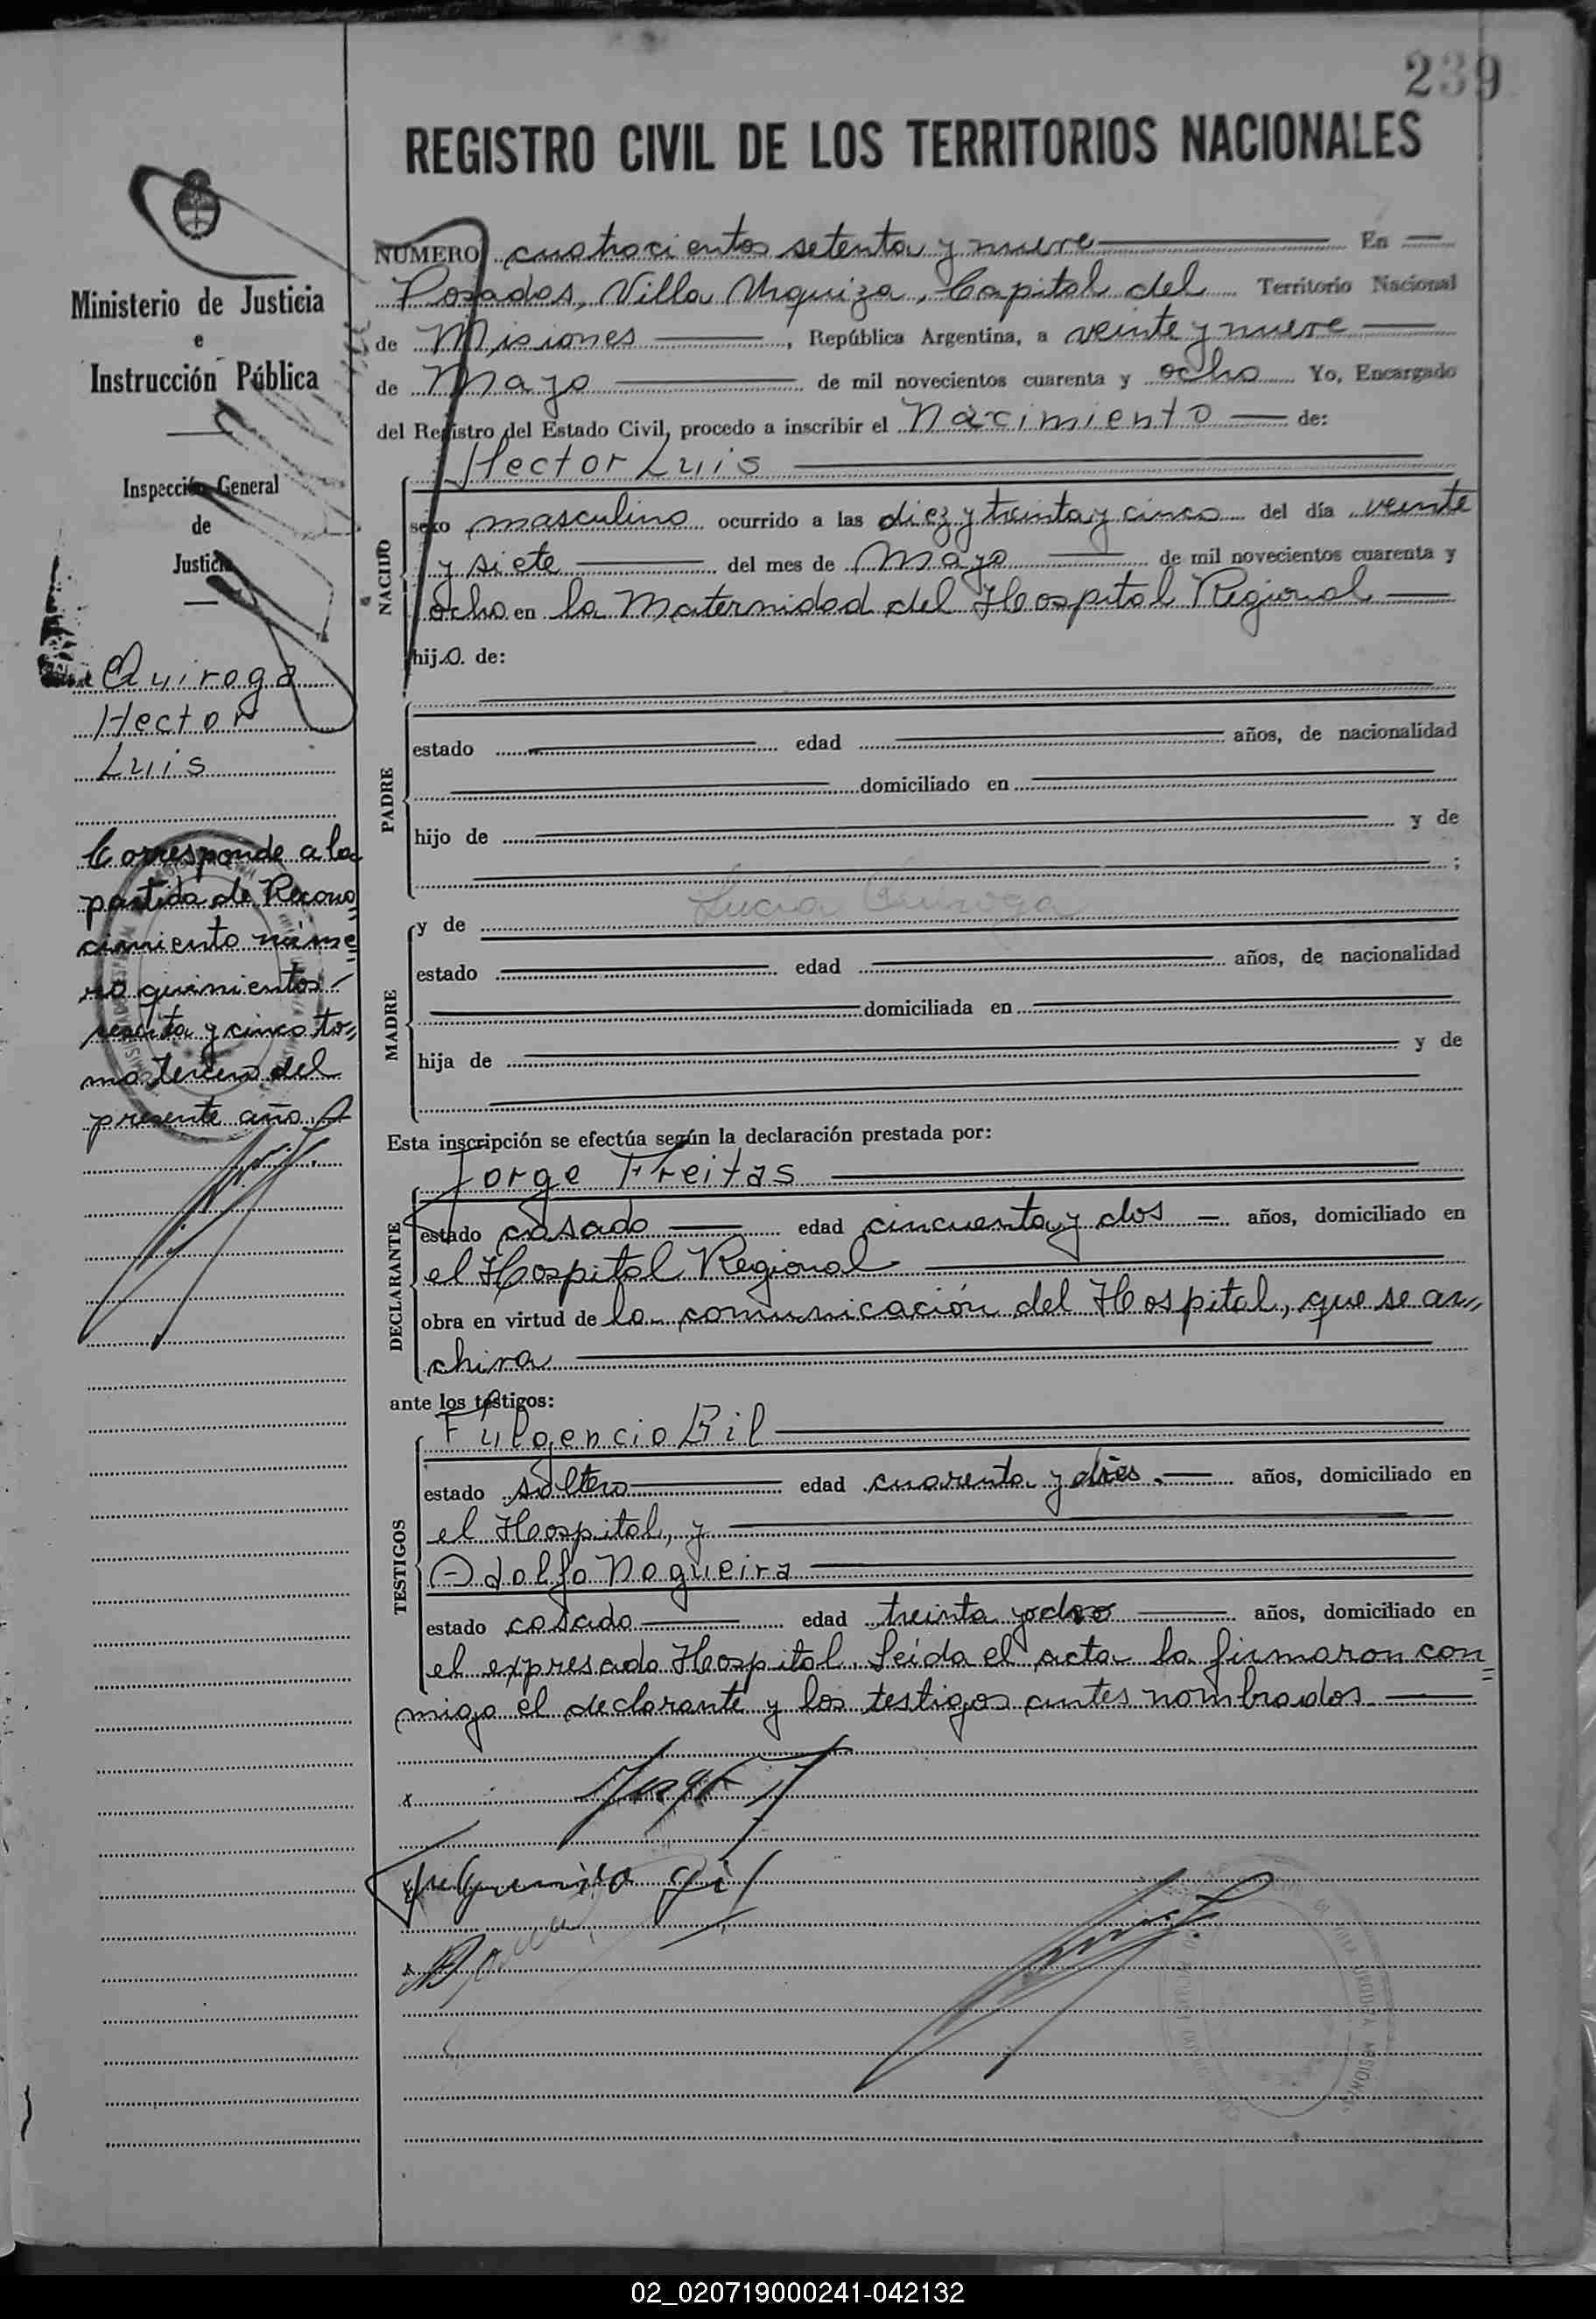 239
REGISTRO CIVIL DE LOS TERRITORIOS NACIONALES
Ministerio de Justicia
e
Instrucción Pública
Inspección General
de
Justicia
Quiroga
Hector
Luis
Corresponde a la
partida de Recono=
cimiento núme=
ro quinientos
sesenta y cinco to=
mo tercero del
presente año.
NUMERO cuatrocientos setenta y nueve En
Posadas, Villa Urquiza, Capital del Territorio Nacional
de Misiones, República Argentina, a veinte y nueve
de Mayo de mil novecientos cuarenta y ocho Yo, Encargado
del Registro del Estado Civil, procedo a inscribir el Nacimiento de:
Hector Luis
NACIDO
sexo masculino ocurrido a las diez y treinta y cinco del día veinte
y siete del mes de Mayo de mil novecientos cuarenta y
ocho en la Maternidad del Hospital Regional
hijo de:
PADRE
estado edad años, de nacionalidad
domiciliado en
hijo de y de
;
Lucia Quiroga
y de
MADRE
estado edad años, de nacionalidad
domiciliada en
hija de y de
Esta inscripción se efectúa según la declaración prestada por:
Jorge Freitas
DECLARANTE
estado casado edad cincuenta y dos años, domiciliado en
el Hospital Regional
obra en virtud de la comunicación del Hospital, que se ar„
chiva
ante los testigos:
Fulgencio Gil
TESTIGOS
estado soltero edad cuarenta y años, domiciliado en
el Hospital, y
Adolfo Nogueira
estado casado edad treinta y años, domiciliado en
el expresado Hospital. Leída el acta la firmaron con=
migo el declarante y los testigos antes nombrados
x
x Fulgencio Gil
x
02_020719000241-042132